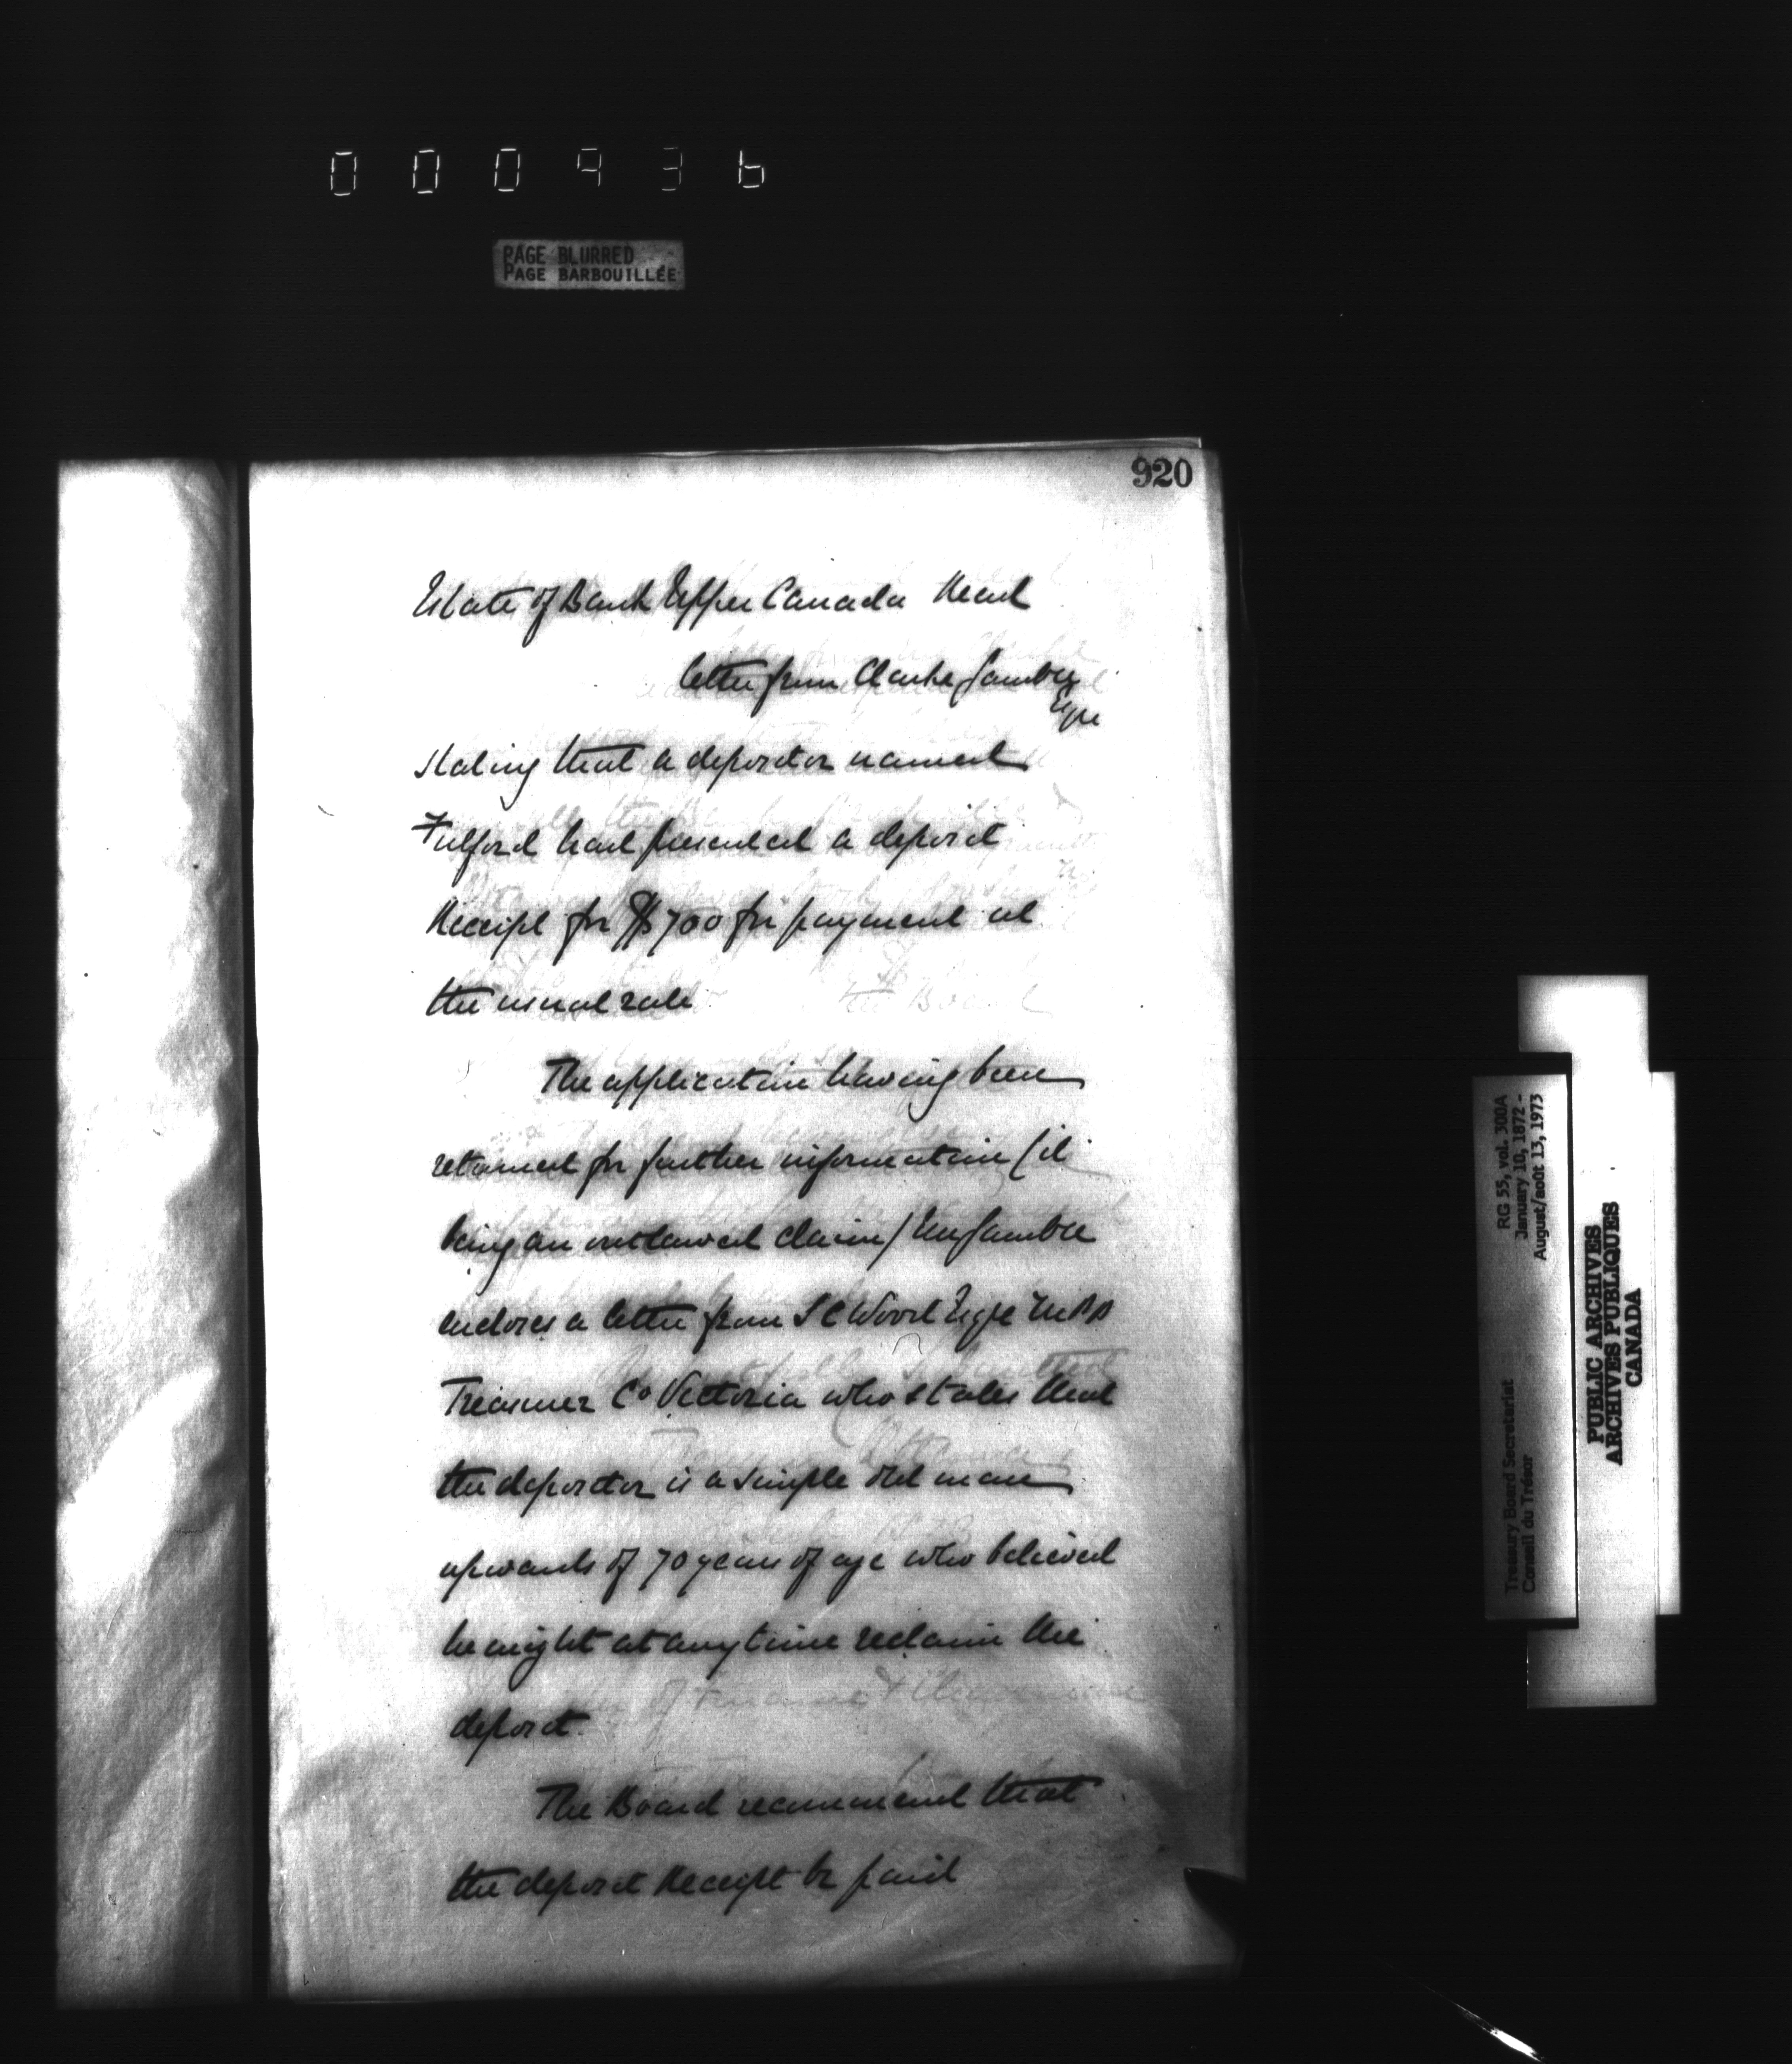 000936
PAGE BLURRED
PAGE BARBOUILLÉE
920
Estate of Bank Upper Canada Read
letter from Clarke Gamble
Esqre
stating that a depositor named
Fulford had presented a deposit
Receipt for $700 for payment at
the usual rate
The application having been
returned for further information (it
being an outlawed claim) Mr Gamble
encloses a letter from S C Wood Esqre MPP
Treasurer Co Victoria who states that
the depositor is a simple old man
upwards of 70 years of age who believed
he might at any time reclaim the
deposit.
The Board recommend that
the deposit Receipt be paid
RG 55, vol. 300A
January 10, 1872 -
August/août 13, 1973
Treasury Board Secretariat
Conseil du Trésor
PUBLIC ARCHIVES
ARCHIVES PUBLIQUES
CANADA